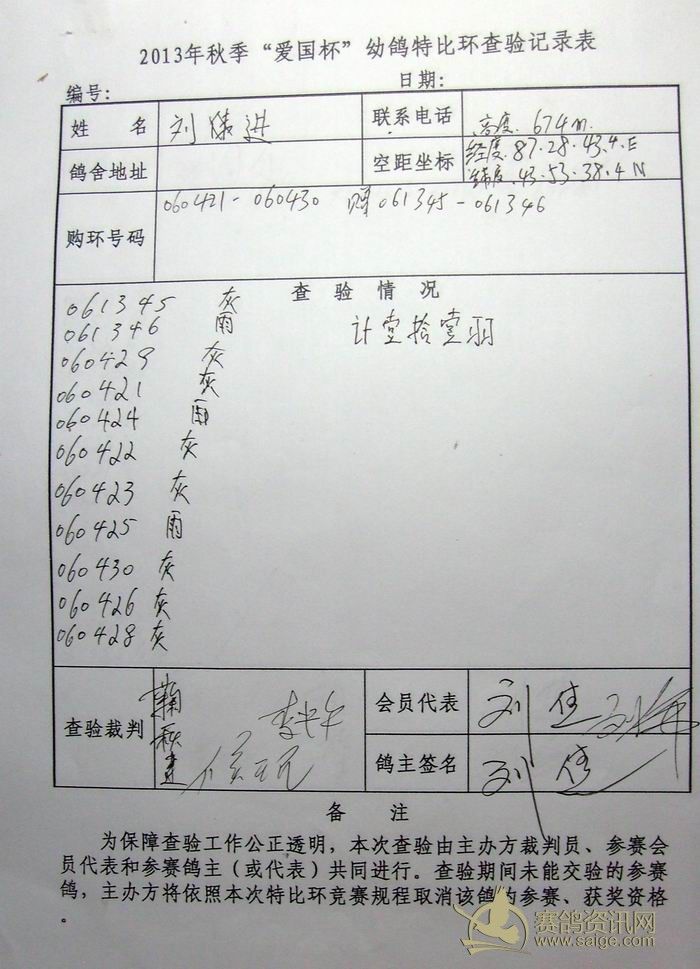 2013年秋季“爱国杯”幼鸽特比环查验记录表
编号: 日期:
姓 名 刘 进 联系电话 高度. 674m.
鸽舍地址 空距坐标 经度.87.28.43.4.E
纬度.43.53.38.4 N
购环号码 060421-060430 061345-061346
查 验 情 况
061345 灰
061346 雨
计壹拾壹羽
060429 灰
060421 灰
060424 雨
060422 灰
060423 灰
060425 雨
060430 灰
060426 灰
060428 灰
查验裁判 会员代表 刘
鸽主签名 刘
备 注
为保障查验工作公正透明，本次查验由主办方裁判员、参赛会
员代表和参赛鸽主（或代表）共同进行。查验期间未能交验的参赛
鸽，主办方将依照本次特比环竞赛规程取消该鸽的参赛、获奖资格
。
赛鸽资讯网
www.saige.com